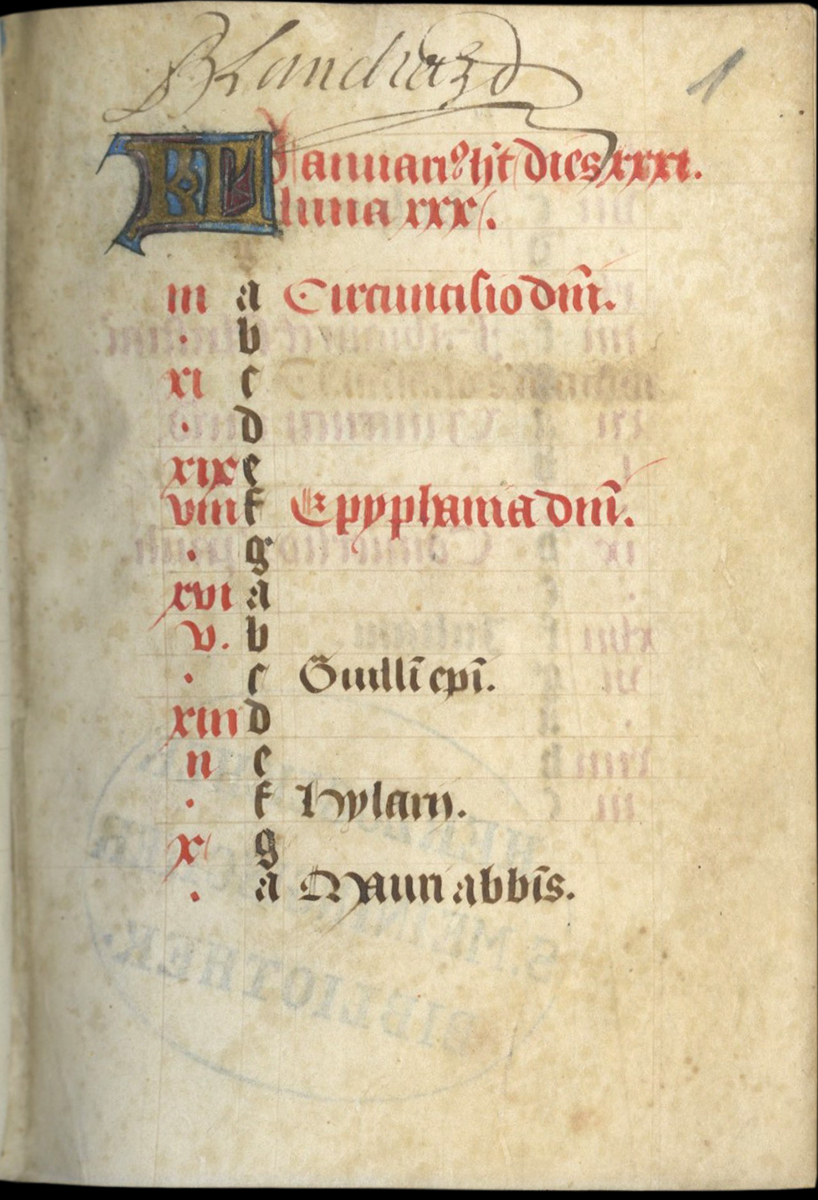 Blanchard
1
KL Januarius h̅t dies xxxi.
luna xxx.
iii a Circuncisio dn̅i.
. b
xi c
. d
xix e
viii f Epyphania dn̅i.
. g
xvi a
v. b
. c Guill̅i ep̅i.
xiii d
ii e
. f hylarij.
x g
. a Mauri abb̅is.
S. MEININGEN
BIBLIOTHEK.